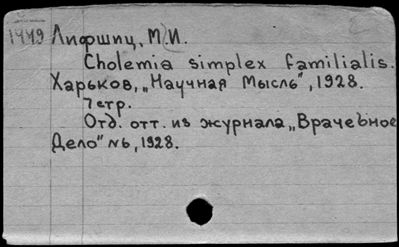 1449 Лифшиц, М.И.
Cholemia simplex familialis.
Харьков, „Научная Мысль", 1928.
7 стр.
Отд. отт. из журнала „Врачебное
Дело" №6, 1928.